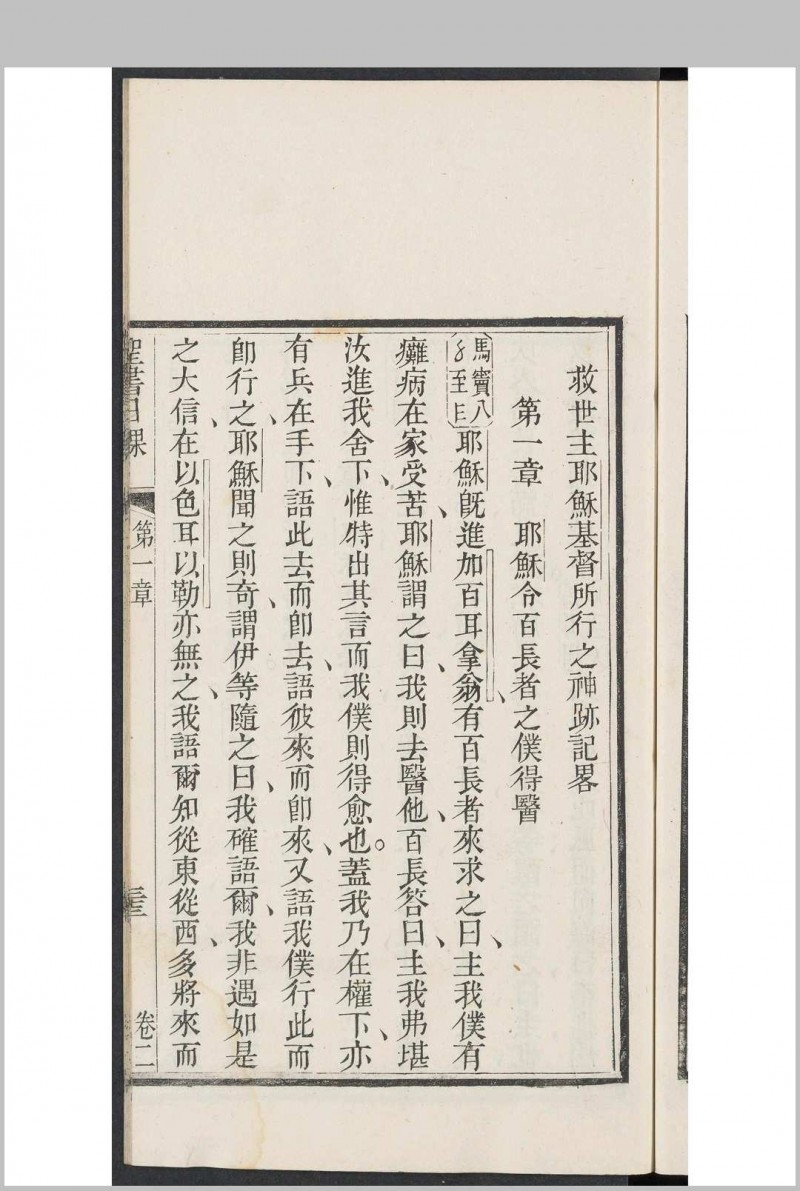 救世主耶穌基督所行之神跡記畧
第一章 耶穌令百長者之僕得醫
馬竇八
至
耶穌既進加百耳拿翁、有百長者來求之曰、主我僕有
癱病在家受苦、耶穌謂之曰、我則去醫他、百長答曰、主我弗堪
汝進我舍下、惟特出其言、而我僕則得愈也。蓋我乃在權下、亦
有兵在手下、語此去而卽去、語彼來而卽來、又語我僕行此而
卽行之、耶穌聞之則奇、謂伊等隨之曰、我確語爾、我非遇如是
之大信、在以色耳以勒亦無之、我語爾知從東從西、多將來而
聖書日課
第一章
三
卷二